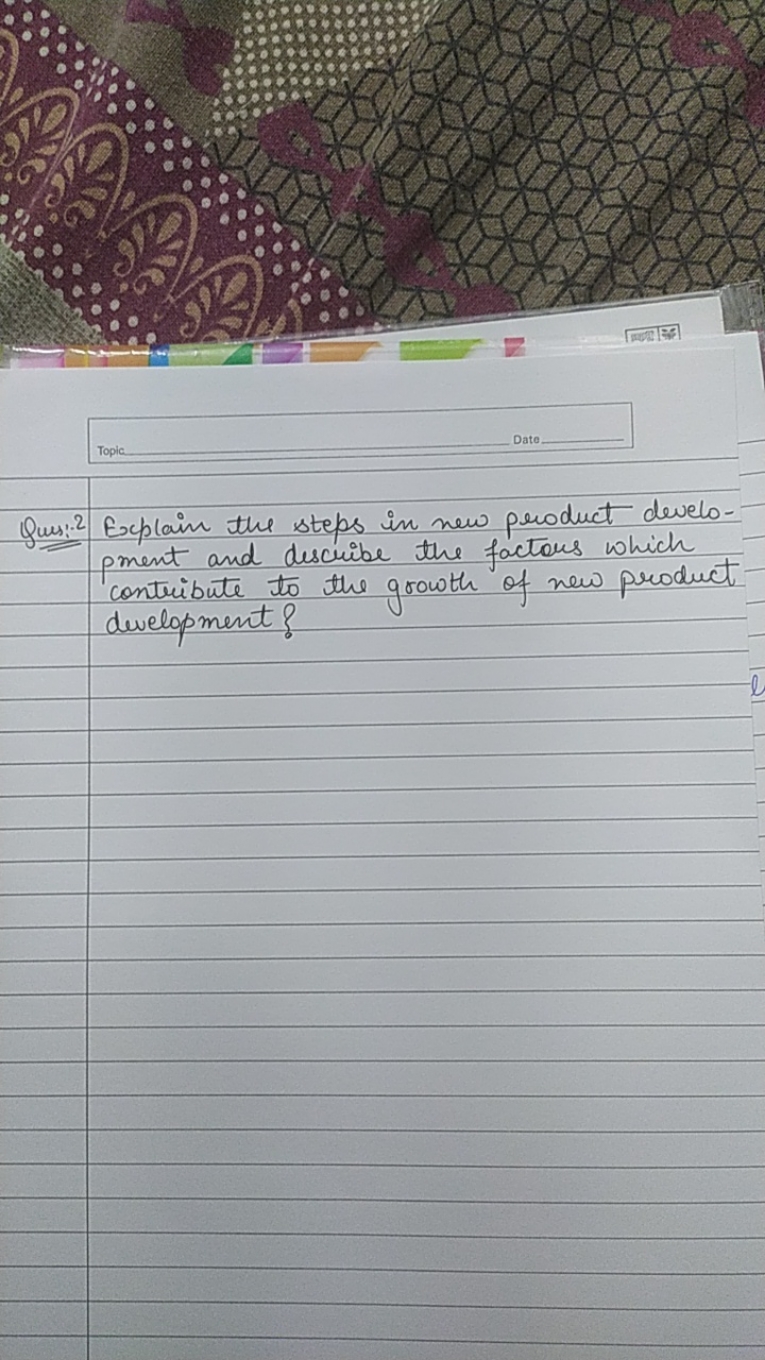 Topic
Date
Ques:-2 Explain the steps in new product develo-
pment and describe the factors which
contribute to the growth of new product
development?